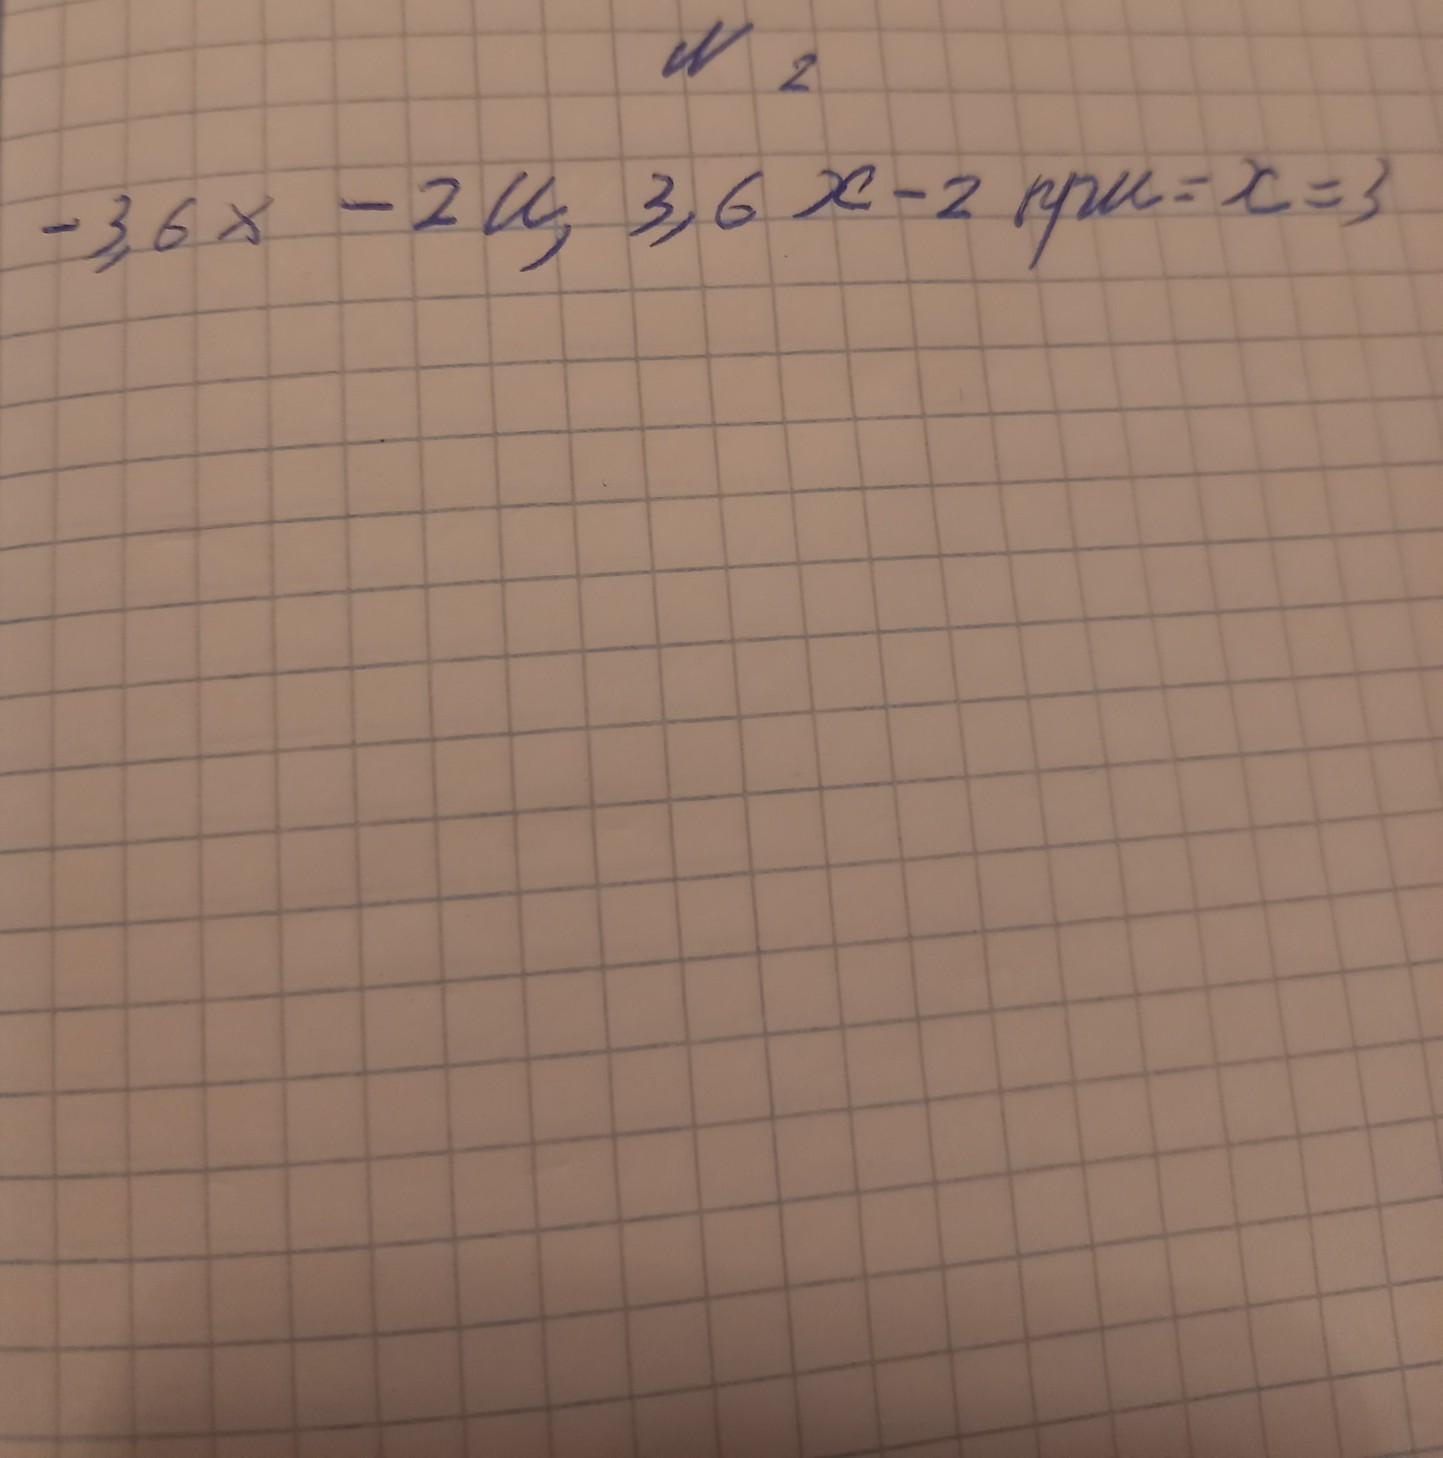 № 2
-3,6x - 2 и, 3,6 x - 2 при = x = 3